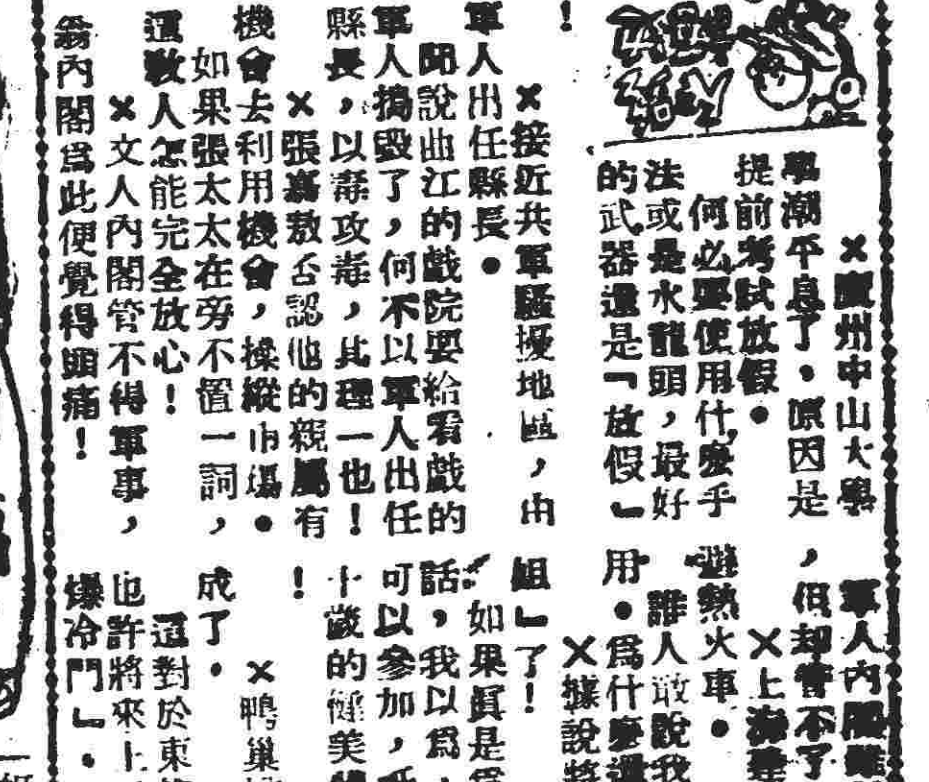 ×廣州中山大學
學潮平息了。原因是
提前考試放假。
何必要使用什麼手
法或是水龍頭，最好
的武器還是「放假」
！
×接近共軍騷擾地區，由
軍人出任縣長。
聞說曲江的戲院要給看戲的
軍人搗毀了，何不以軍人出任
縣長，以毒攻毒，其理一也！
×張嘉敖否認他的親屬有
機會去利用機會，操縱市場。
如果張太太在旁不置一詞，
還敎人怎能完全放心！
×文人內閣管不得軍事，
翁內閣爲此便覺得頭痛！
軍人內閣雖
，但却管不了
×上海
火車。
誰人敢說我
用。爲什麼還
×據說將
組」了！
如果眞是
話，我以爲，
可以參加，
十歲的健美
！
×鴨巢
成了。
這對於東
也許將來上
爆冷門」。